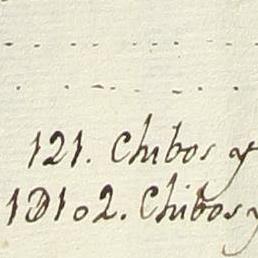 121. Chibos y
1D102. Chibos y